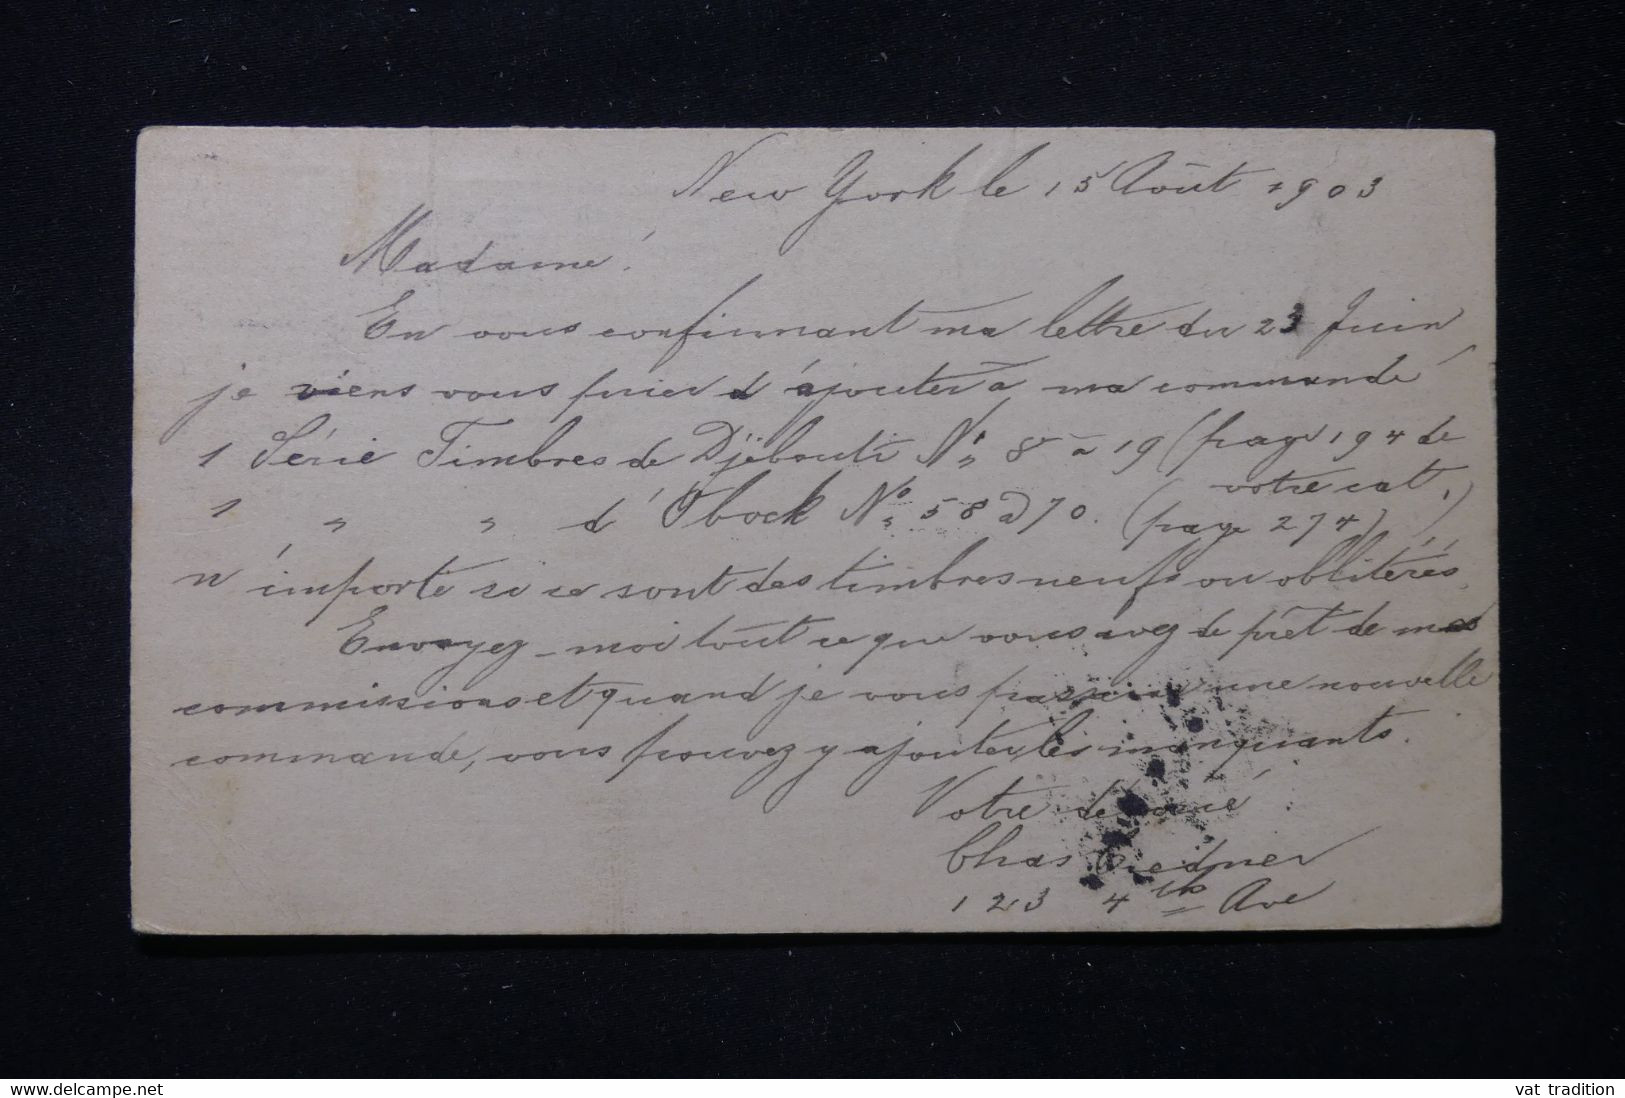 New York le 15 Août 1903
Madame!
En vous confirmant ma lettre du 23 Juin
je viens vous prier d'ajouter à ma commande
1 Série Timbres de Djëbouti No 8 à 19 (page 194 de
votre cat.)
1 " " d'Obock No 58 à 70. (page 274)
n'importe si ce sont des timbres neufs ou oblitérés.
Envoyez-moi tout ce que vous avez de prêt de mes
commissions et quand je vous passerai une nouvelle
commande, vous pouvez y ajouter les manquants.
Votre dévoué
Chas
123 4th Ave
www.delcampe.net
vat tradition